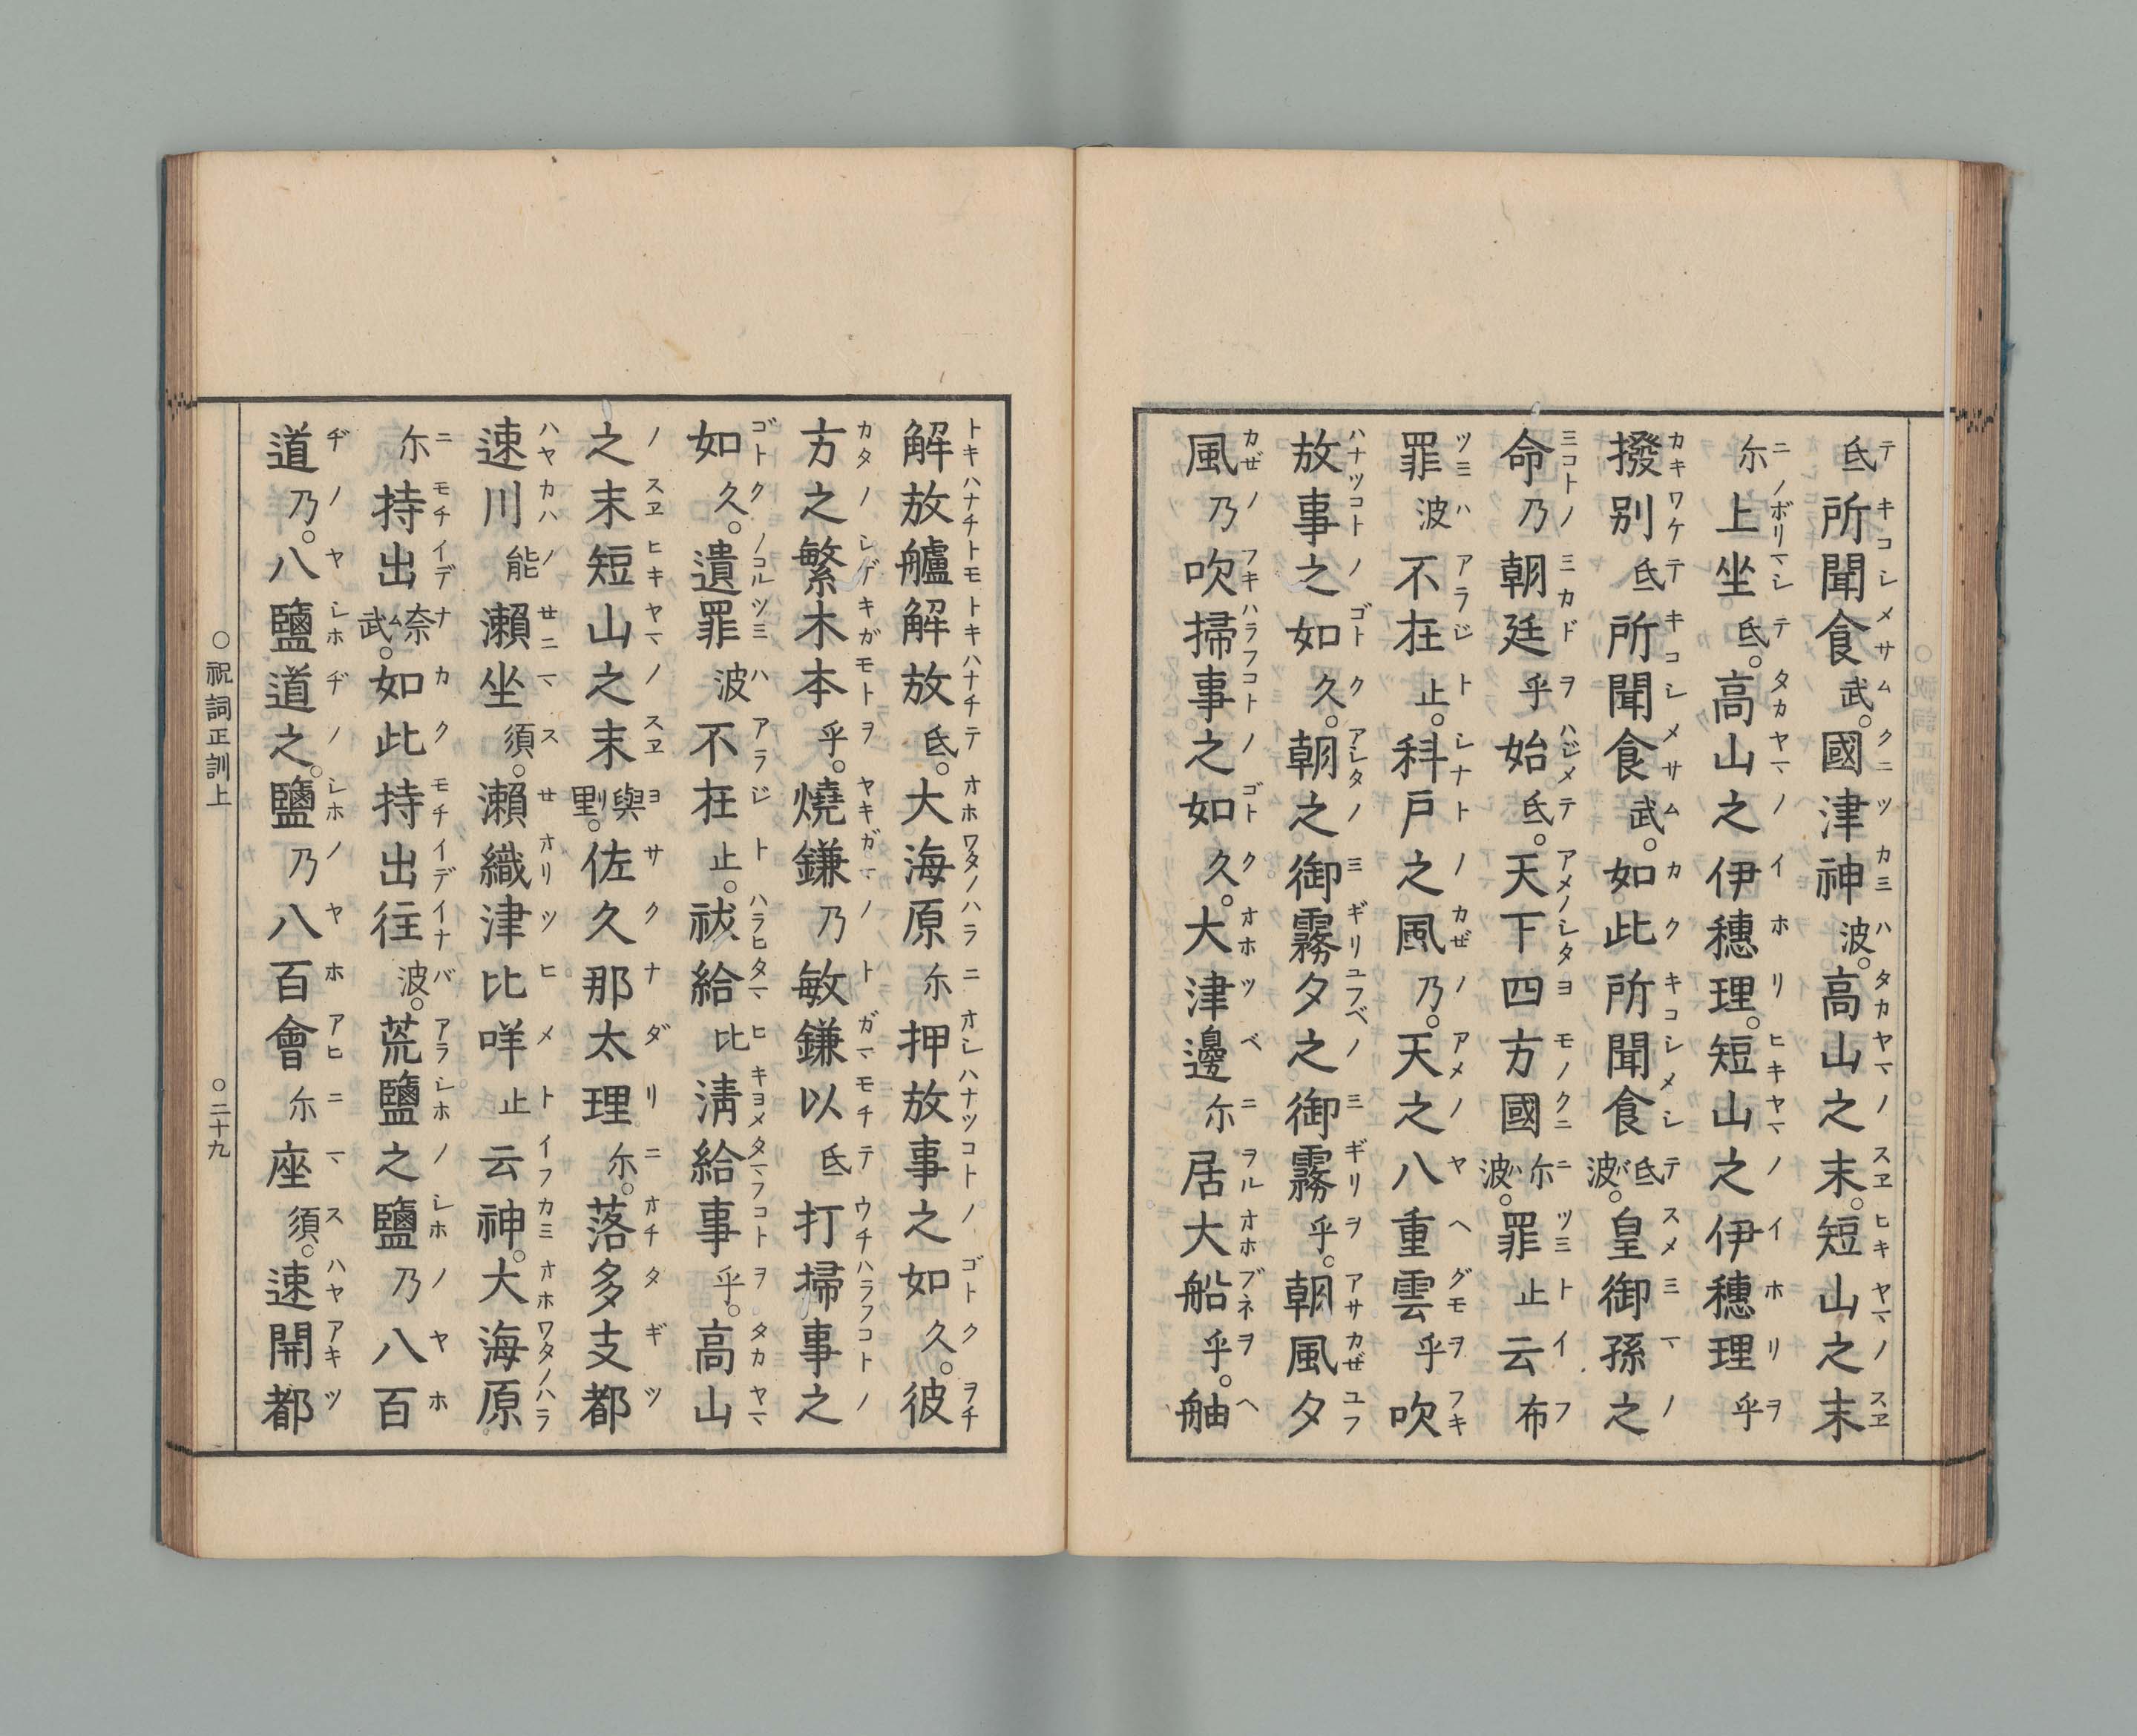 氐所聞食武。國津神波。高山之末。短山之末
尓上坐氐。高山之伊穗理。短山之伊穗理乎
撥别氐所聞食武。如此所聞食氐波。皇御孫之
命乃朝廷乎始氐。天下四方國尓波。罪止云布
罪波不在止。科戸之風乃。天之八重雲乎吹
放事之如久。朝之御霧夕之御霧乎。朝風夕
風乃吹掃事之如久。大津邊尓居大船乎。舳
解放艫解放氐。大海原尓押放事之如久。彼
方之繁木本乎。燒鎌乃敏鎌以氐打掃事之
如久。遺罪波不在止。祓給比淸給事乎。高山
之末短山之末與里。佐久那太理尓。落多支都
速川能瀬坐須。瀬織津比咩止云神。大海原
尓持出奈武。如此持出往波。荒鹽之鹽乃八百
道乃。八鹽道之。鹽乃八百會尓座須。速開都
○祝詞正訓上 ○二十九